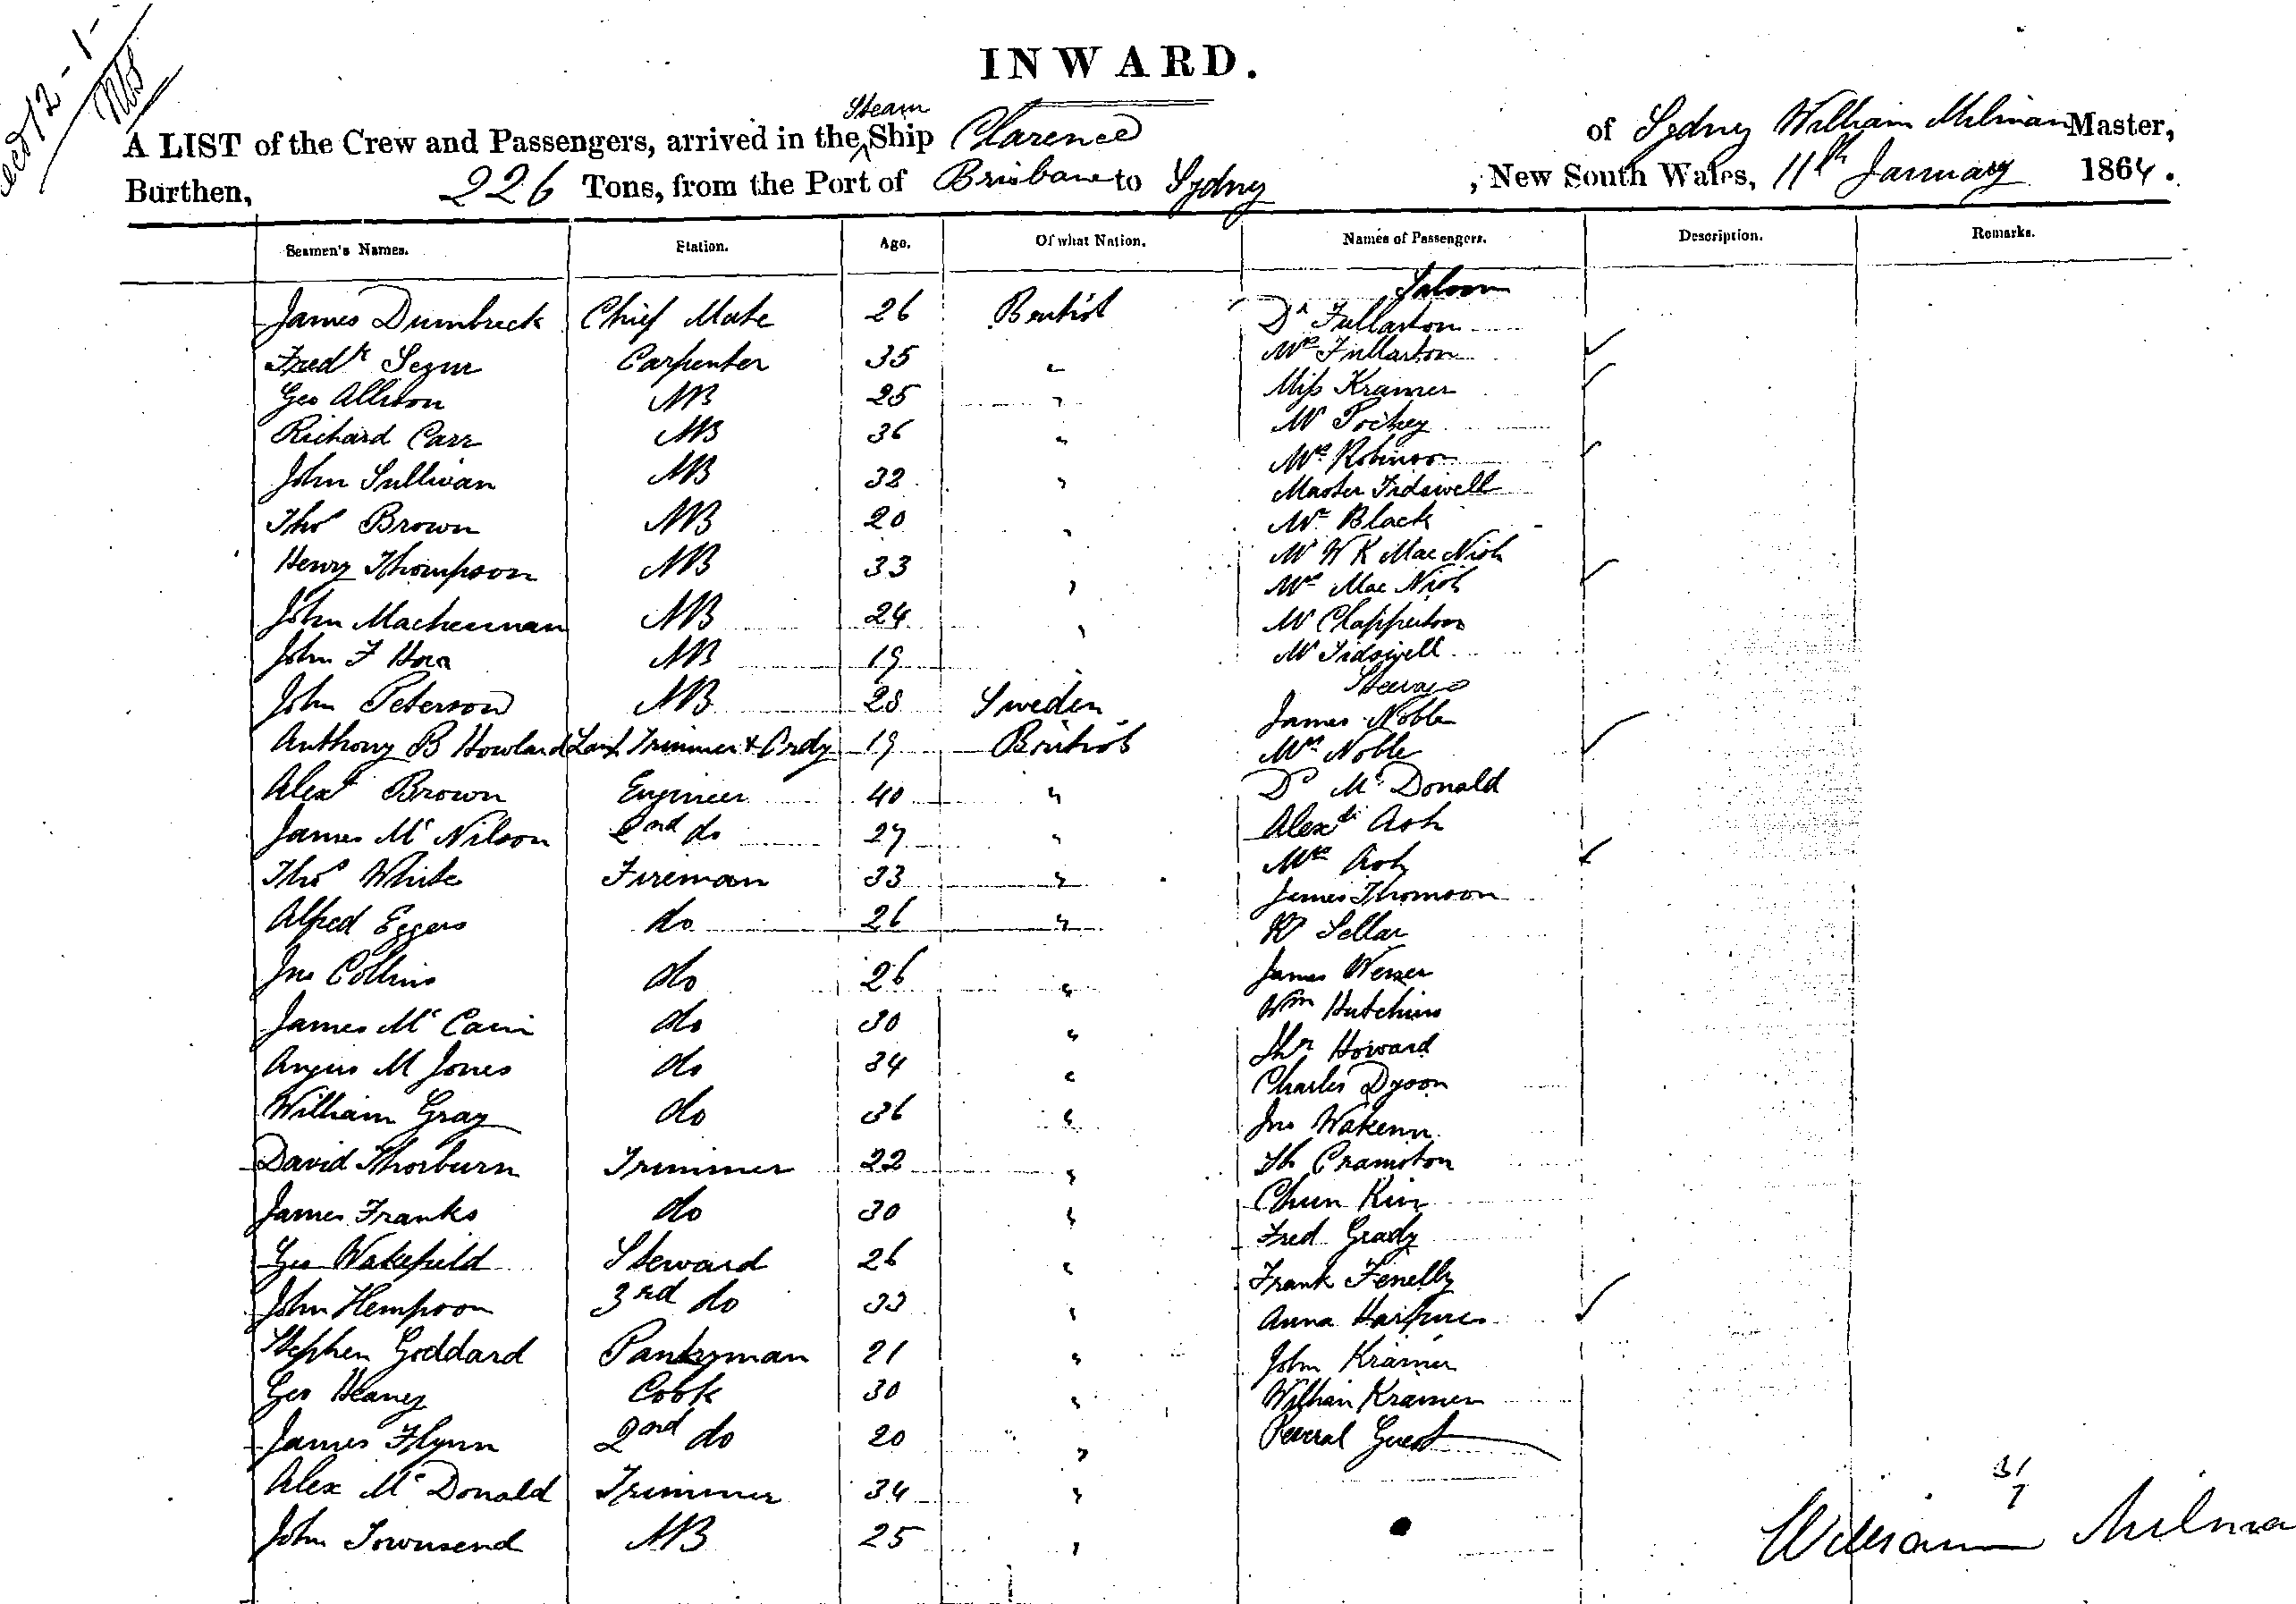 recd 12-1-
INWARD.
A LIST of the Crew and Passengers, arrived in the Steam Ship Clarence of Sydney William Milman Master,
Burthen, 226 Tons, from the Port of Brisbane to Sydney, New South Wales, 11th January 1864.
Seamen's Names. Station. Age. Of what Nation. Names of Passengers. Description. Remarks.
Saloon
James Dumbreck Chief Mate 26 British Dr Fullarton
Fredk Segur Carpenter 35 " Mrs Fullarton ✓
Geo Allison AB 25 " Miss Kramer ✓
Richard Carr AB 36 " Mr Pockey
John Sullivan AB 32 " Mrs Robinson ✓
Master Tidswell
Thos Brown AB 20 " Mr Black
Henry Thompson AB 33 " Mr W K Mac Nish
Mrs Mac Nish ✓
John Mackennan AB 24 " Mr Clapperton
John F Hora AB 19 " Mr Tidswell
Steerage
John Peterson AB 28 Sweden James Noble
Anthony B Howland Lamp Trimmer & Ordy 19 British Mrs Noble ✓
Alexr Brown Engineer 40 " D McDonald
James Mc Nilson 2nd do 27 " Alexdr Ash
Thos White Fireman 33 " Mrs Ash ✓
James Thomson
Alfred Eggers do 26 " W Sellar
Jno Collins do 26 " James Weser
James McCain do 30 " Wm Hutchins
Angus M Jones do 34 " Thos Howard
Charles Dyson
William Gray do 36 " Jno Wakenn
David Thorburn Trimmer 22 " Th Cramston
James Franks do 30 " Chun Kin
Fred Grady
Geo Wakefield Steward 26 " Frank Fenelly
John Hempson 3rd do 33 " Anna Harpur ✓
Stephen Goddard Pantryman 21 " John Kramer
Geo Heaney Cook 30 " William Kramer
James Flynn 2nd do 20 " Peveral Guest
Alex McDonald Trimmer 34 "
John Townsend AB 25 "
31
7
William Milma